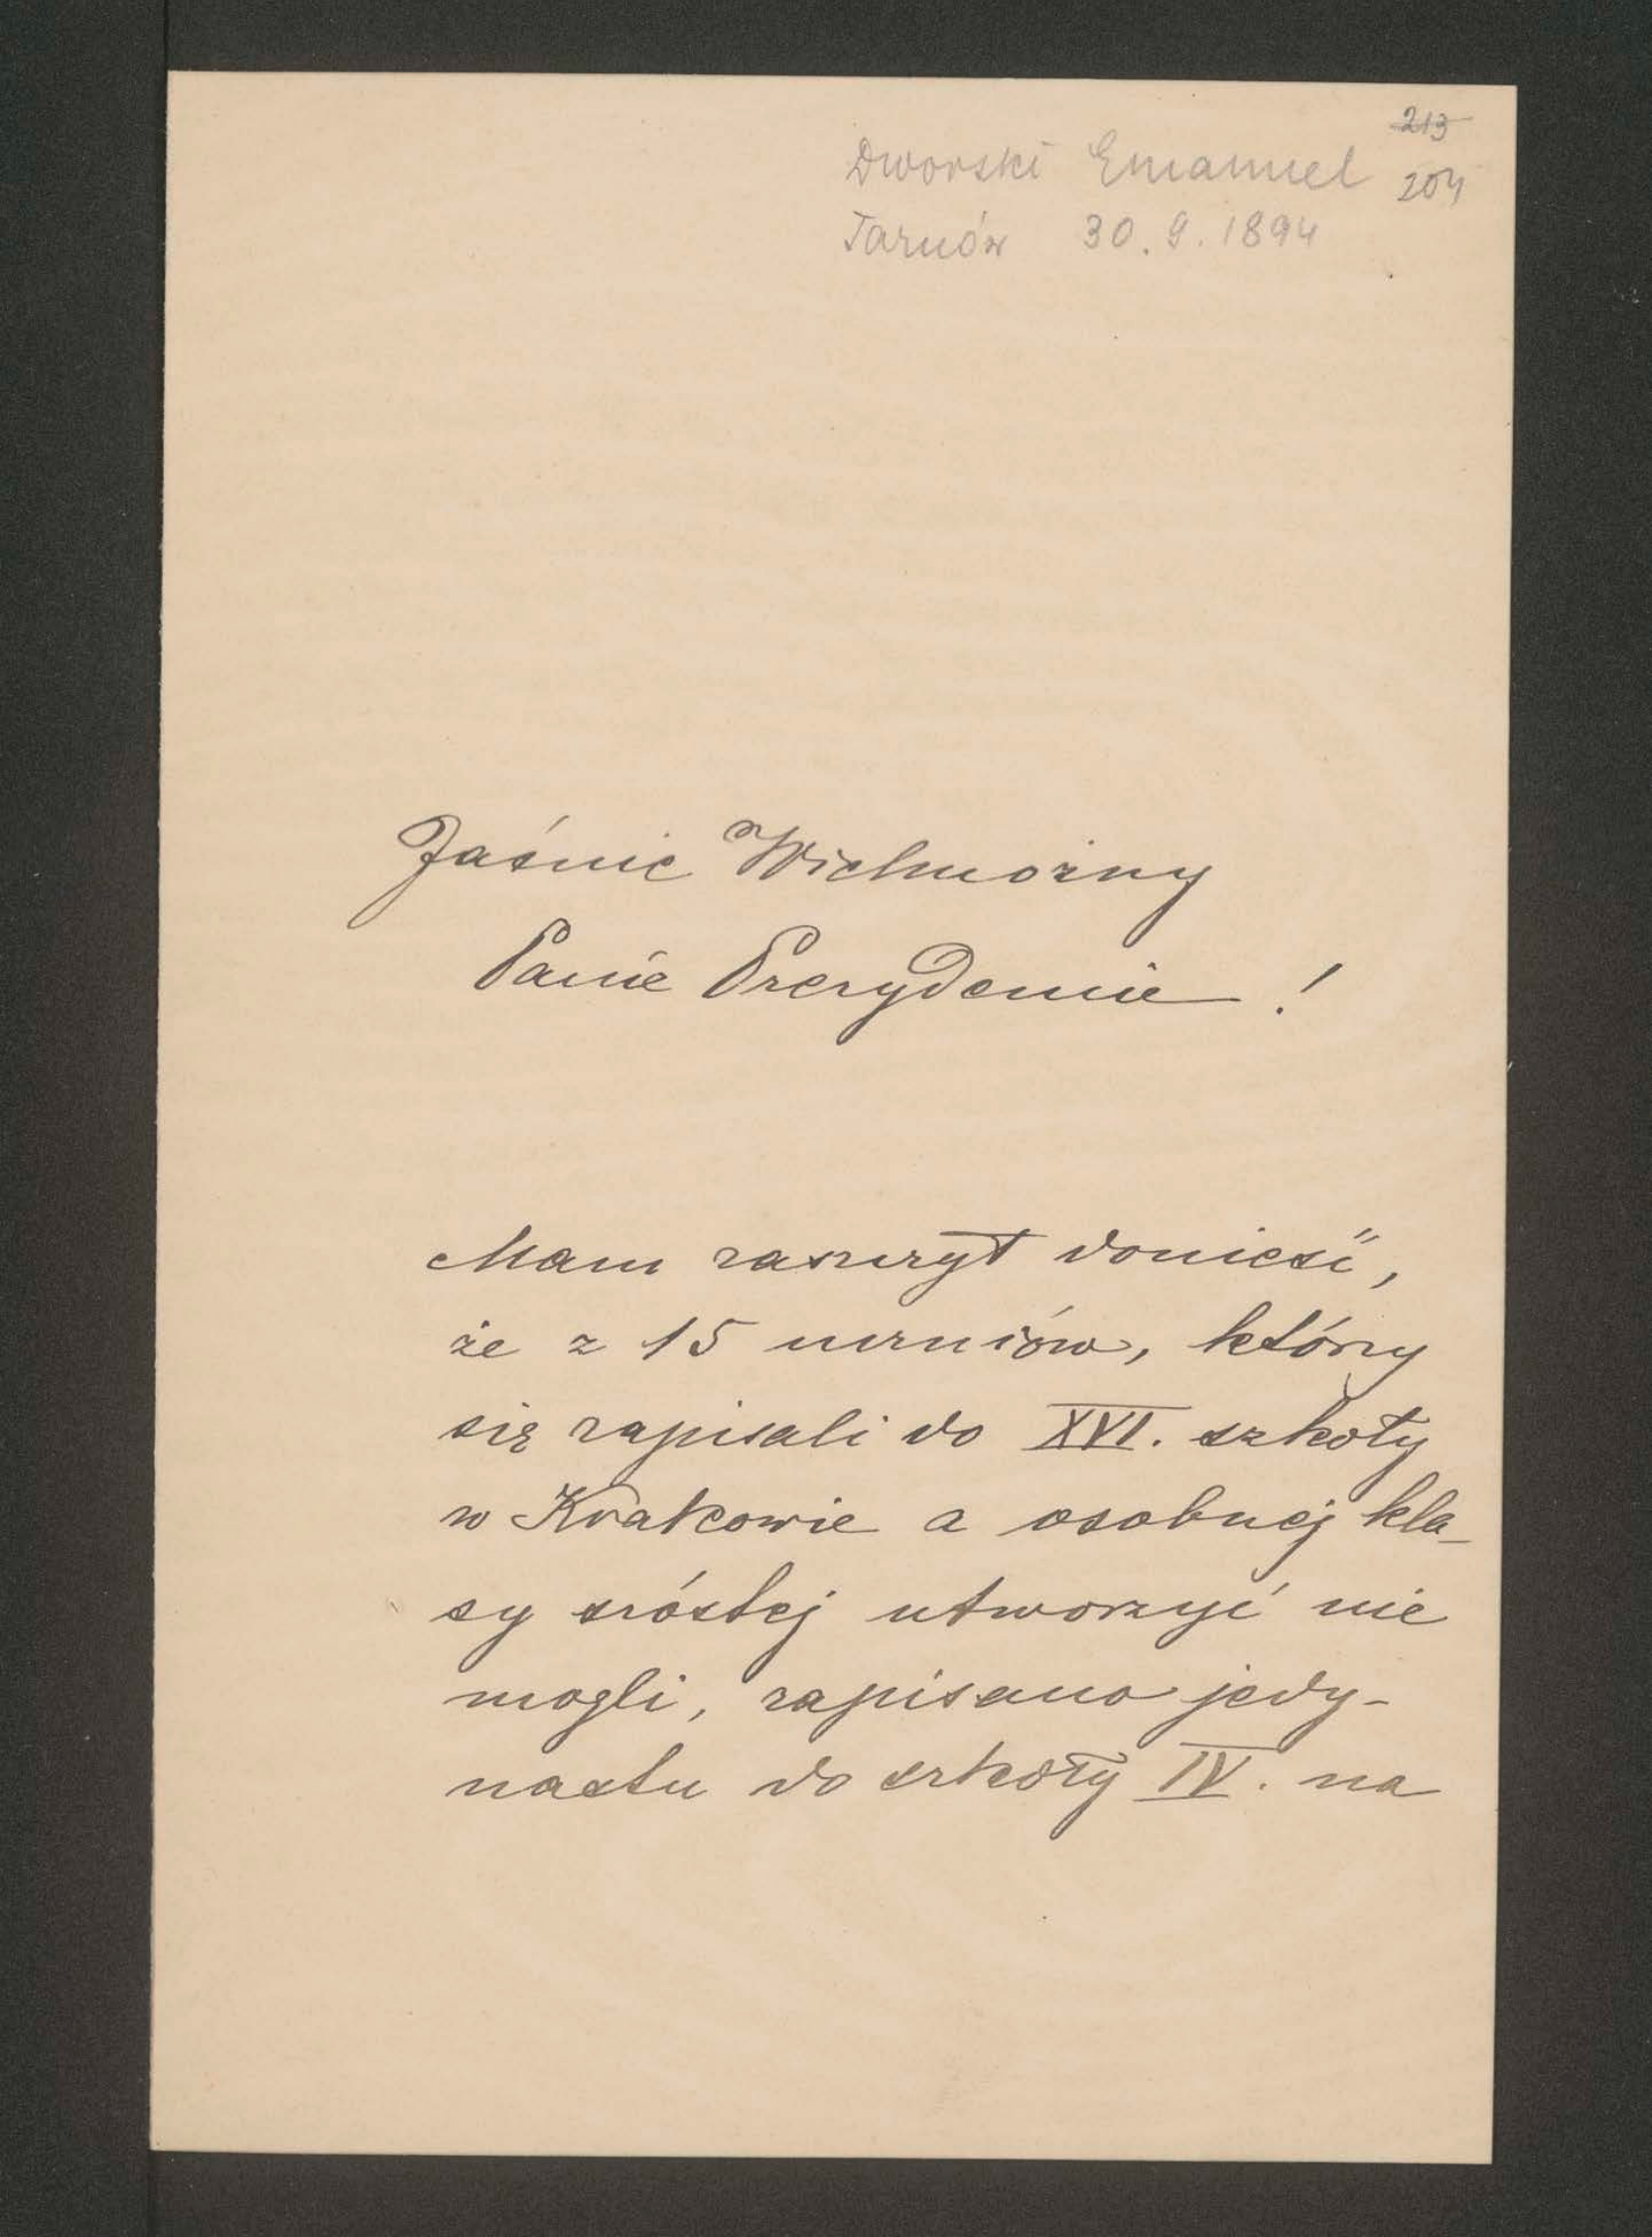 213
Dworski Emanuel 204
Tarnów 30.9.1894
Jaśnie Wielmożny
Panie Prezydencie !
Mam zaszczyt donieść,
że z 15 uczniów, którzy
się zapisali do XVI. szkoły
w Krakowie a osobnej kla-
sy szóstej utworzyć nie
mogli, zapisano jedy-
nastu do szkoły IV. na